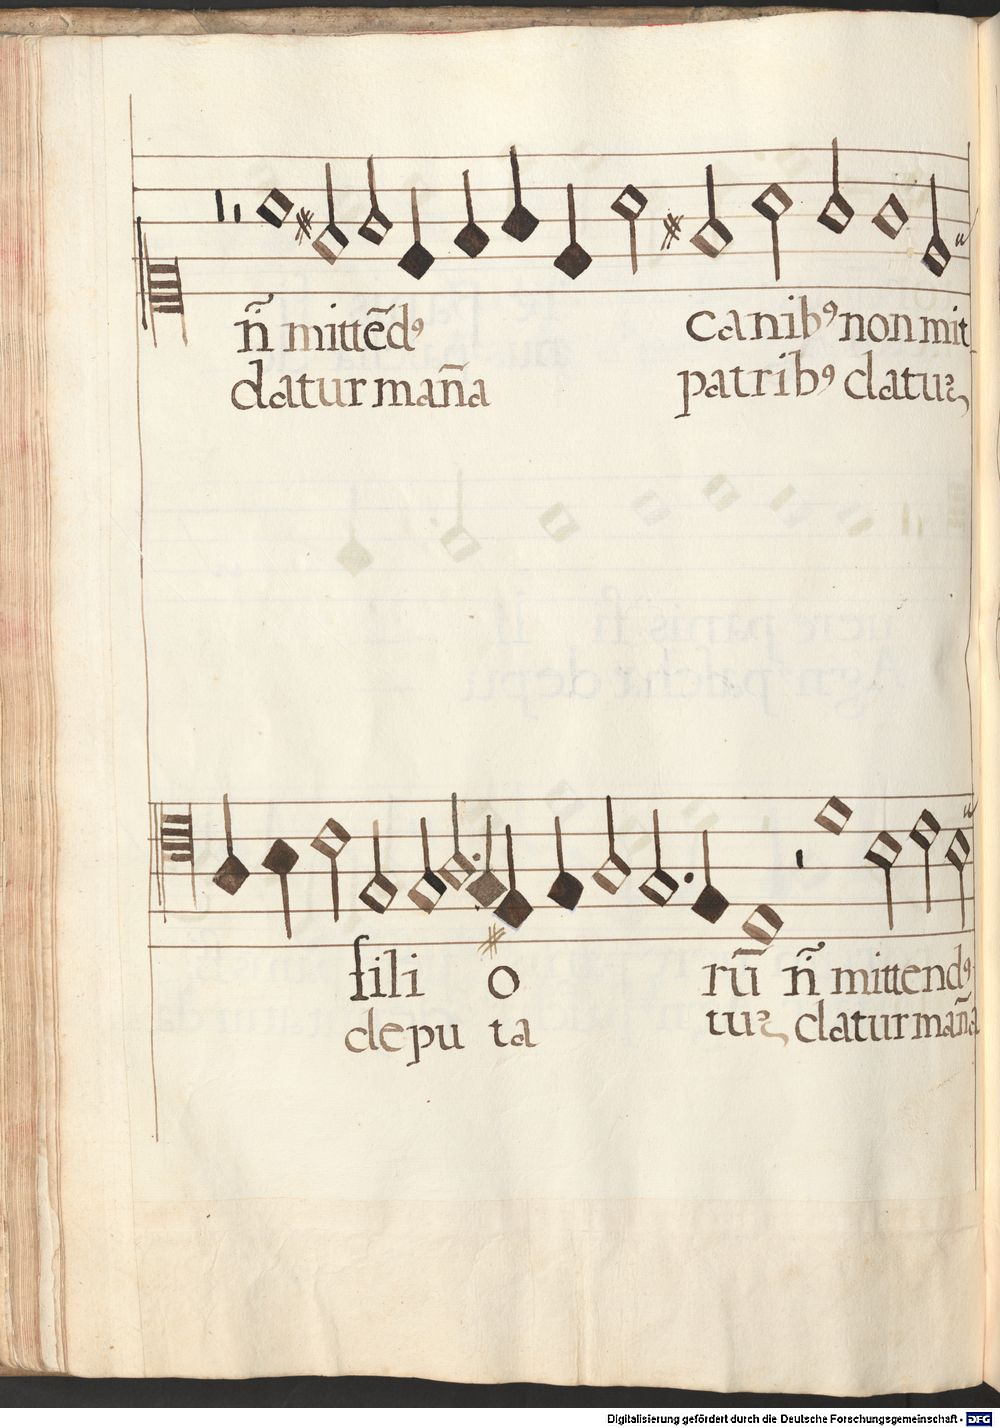 n̄ mittēdꝯ canibꝯ non mit
datur maña patribꝯ datuꝛ
fili o rū n̄ mittendꝯ
depu ta tuꝛ datur maña
Digitalisierung gefördert durch die Deutsche Forschungsgemeinschaft - DFG